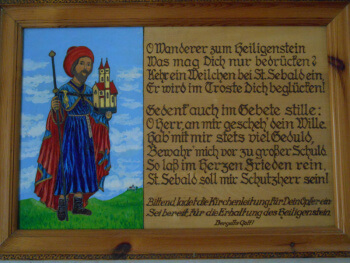 O Wanderer zum Heiligenstein
Was mag Dich nur bedrücken?
Kehr ein Weilchen bei St. Sebald ein,
Er wird im Troste Dich beglücken!
Gedenk auch im Gebete stille:
O Herr, an mir gescheh' dein Wille.
Hab mit mir stets viel Geduld,
Bewahr' mich vor zu großer Schuld.
So laß im Herzen Frieden rein,
St. Sebald soll mir Schutzherr sein!
Bittend, ladet die Kirchenleitung für Dein Opfer ein
Sei bereit, für die Erhaltung des Heiligenstein.